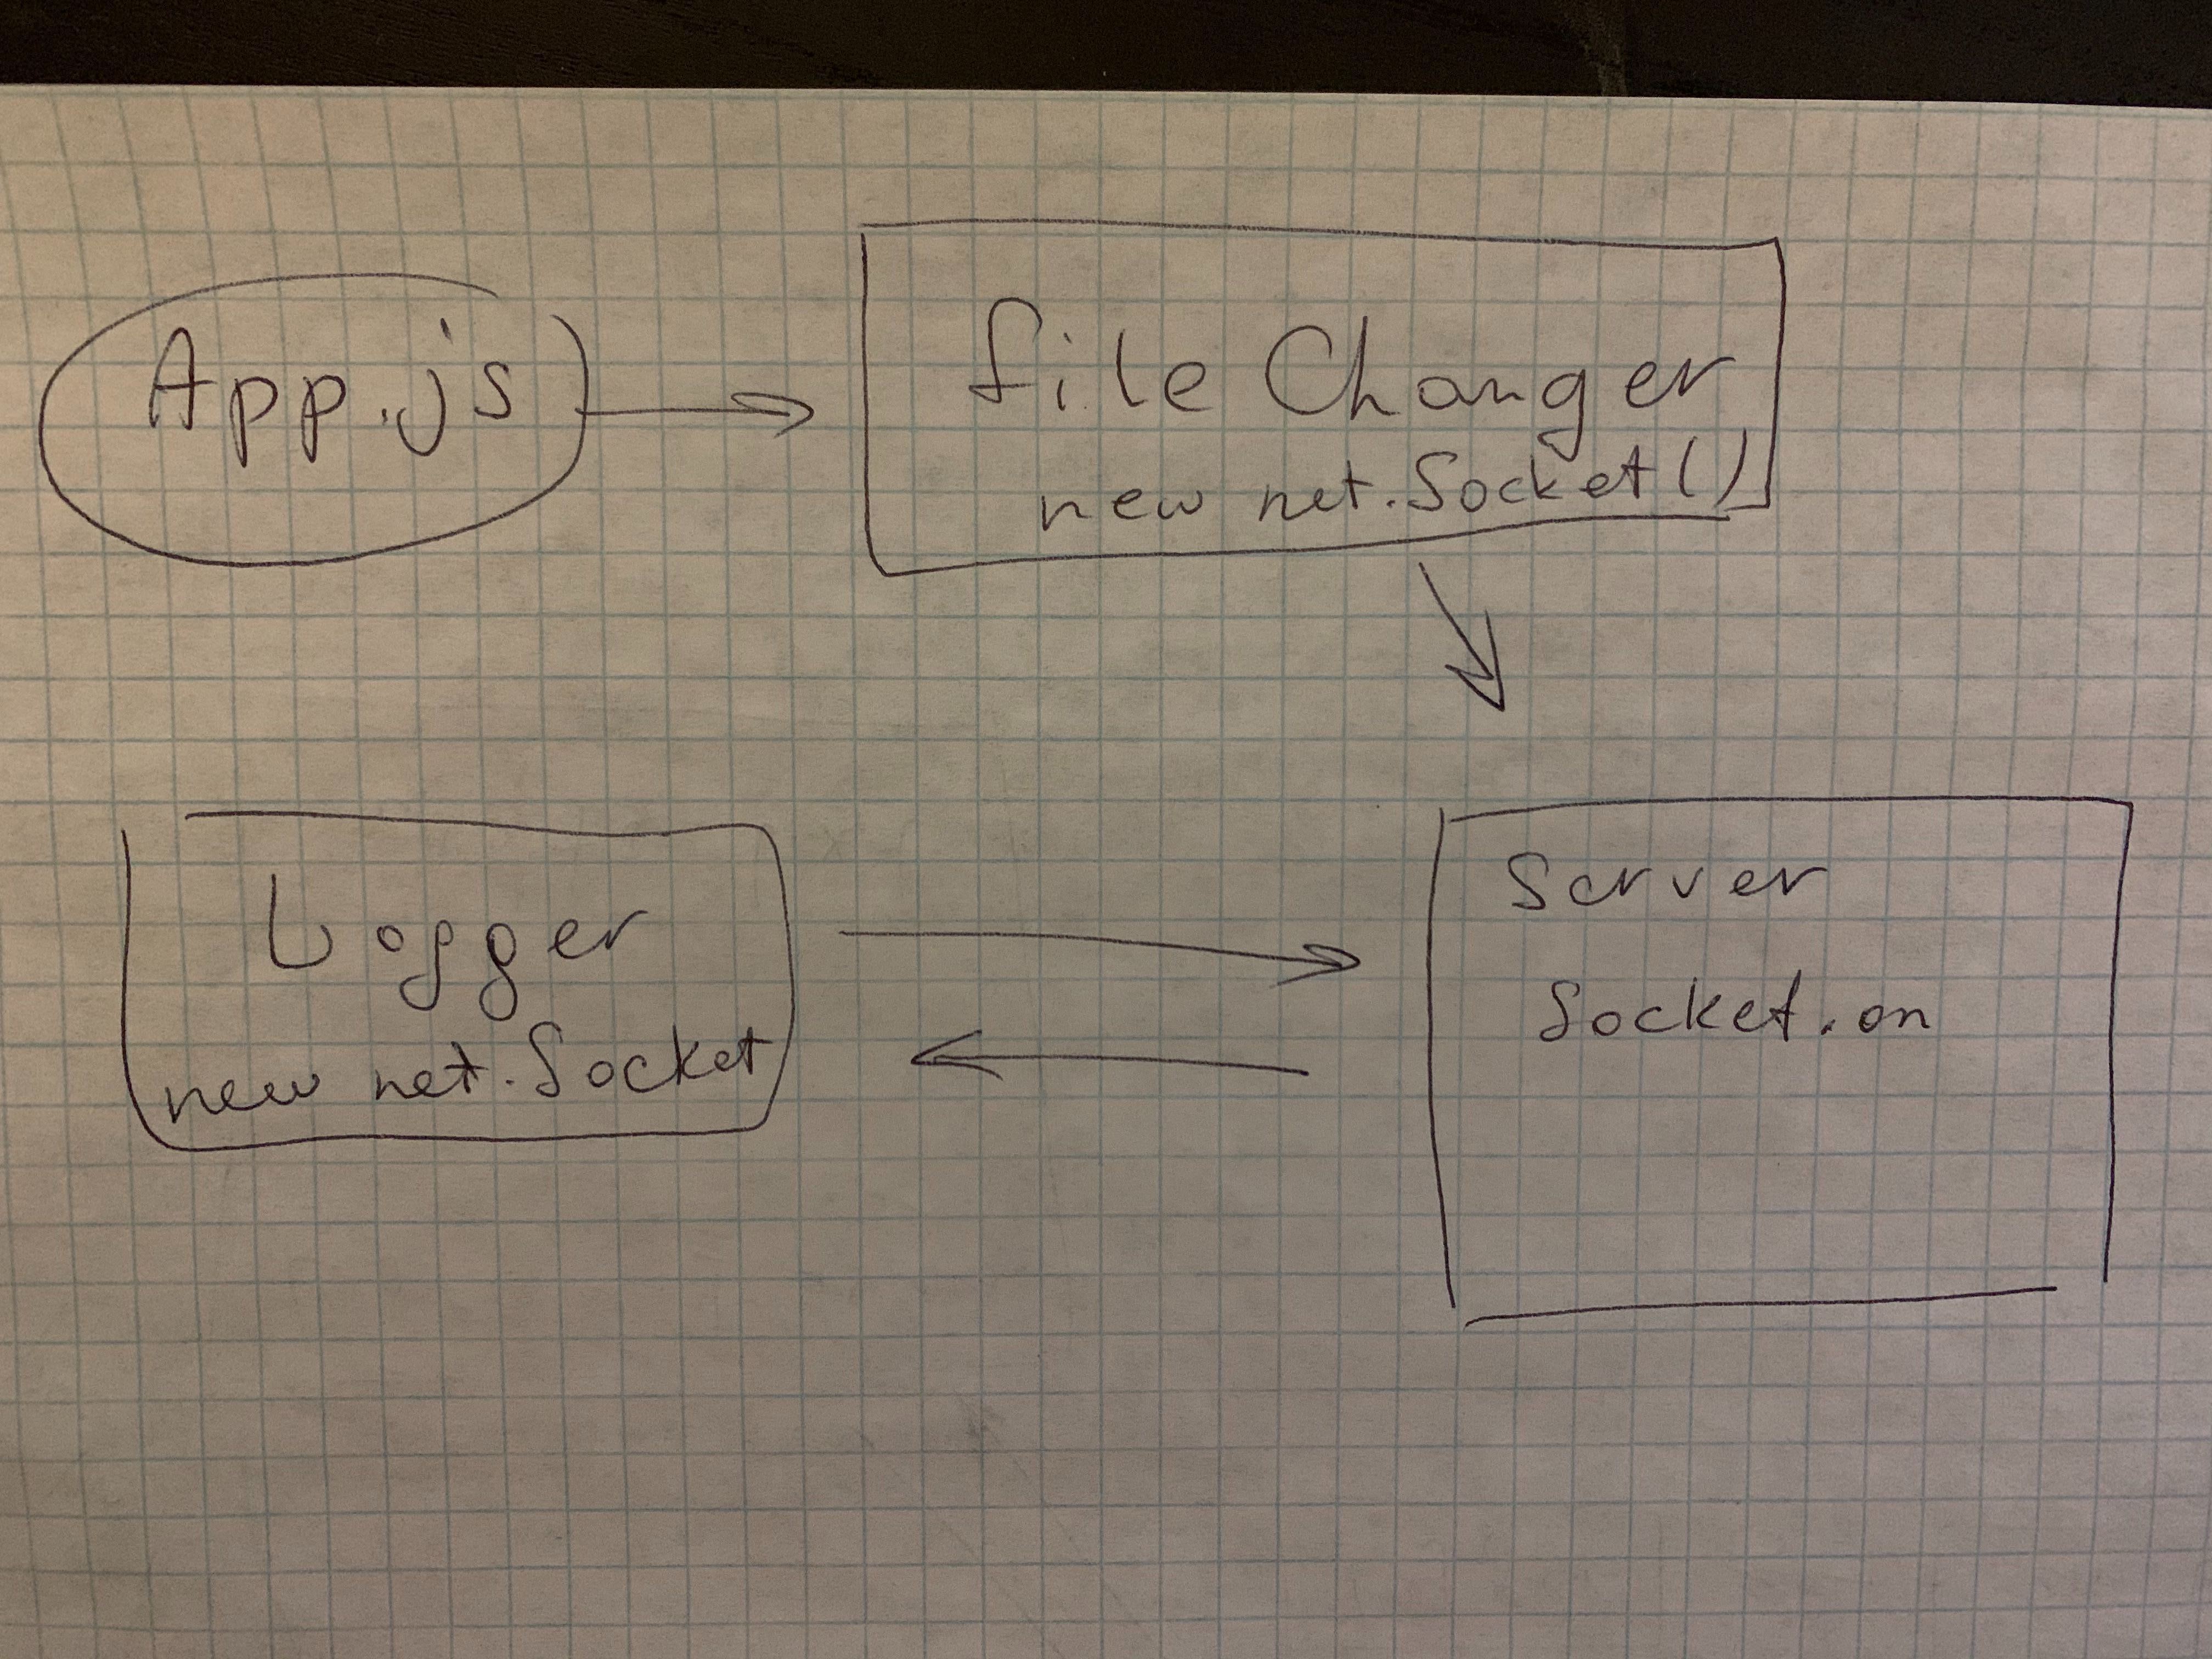 App.js
file Changer
new net.Socket()
Logger
new net.Socket
Server
Socket.on